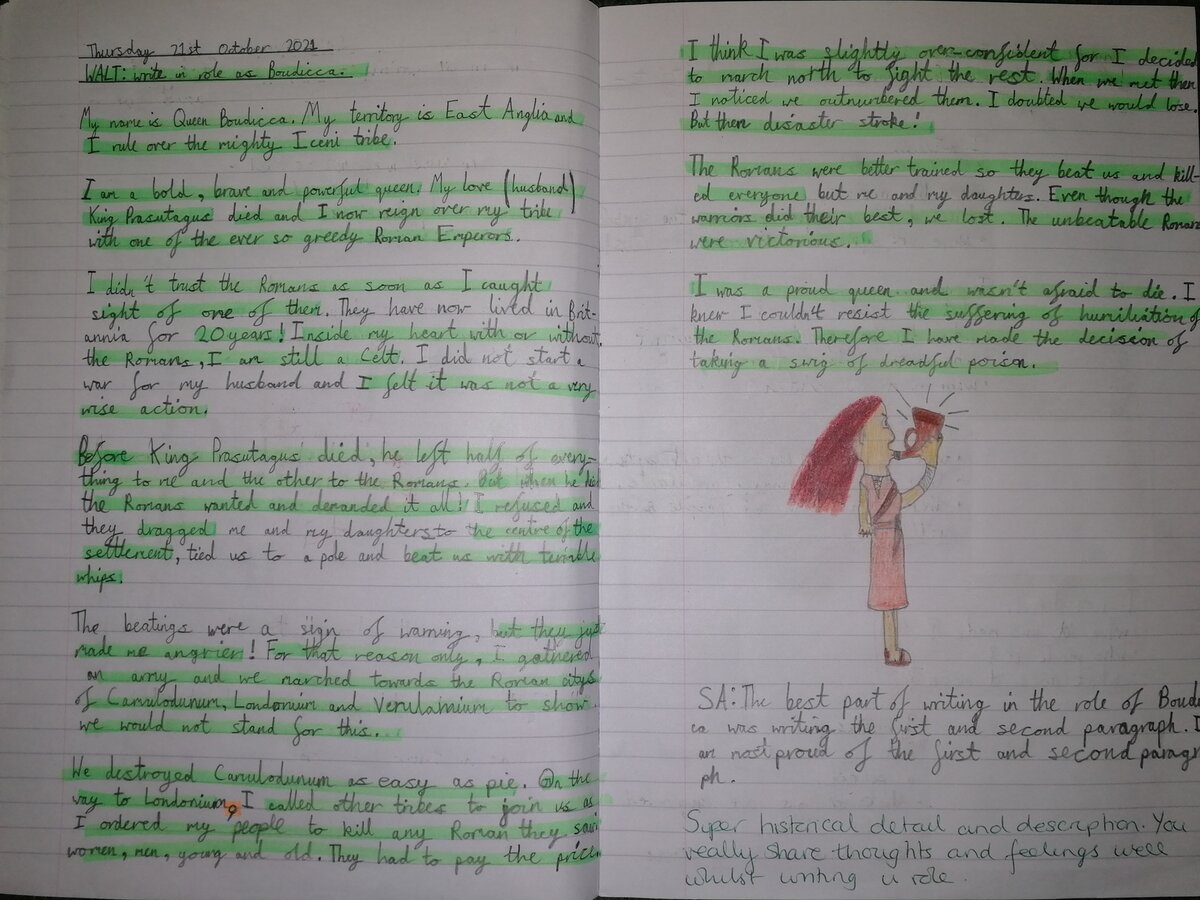 Thursday 21st October 2021
WALT: write in role as Boudicca.
My name is Queen Boudicca. My territory is East Anglia and
I rule over the mighty Iceni tribe.
I am a bold, brave and powerful queen. My love (husband)
King Prasutagus died and I now reign over my tribe
with one of the ever so greedy Roman Emperors.
I didn't trust the Romans as soon as I caught
sight of one of them. They have now lived in Brit-
annia for 20 years! Inside my heart with or without
the Romans, I am still a Celt. I did not start a
war for my husband and I felt it was not a very
wise action.
Before King Prasutagus died, he left half of every-
thing to me and the other to the Romans. But when he died
the Romans wanted and demanded it all! I refused and
they dragged me and my daughters to the centre of the
settlement, tied us to a pole and beat us with terrible
whips.
The beatings were a sign of warning, but they just
made me angrier! For that reason only, I gathered
an army and we marched towards the Roman citys
of Camulodunum, Londonium and Verulamium to show
we would not stand for this.
We destroyed Camulodunum as easy as pie. On the
way to Londonium, I called other tribes to join us as
I ordered my people to kill any Roman they saw
women, men, young and old. They had to pay the price
I think I was slightly over-confident for I decided
to march north to fight the rest. When we met them
I noticed we outnumbered them. I doubted we would lose.
But then disaster stroke!
The Romans were better trained so they beat us and kill-
ed everyone but me and my daughters. Even though the
warriors did their best, we lost. The unbeatable Romans
were victorious.
I was a proud queen and wasn't afraid to die. I
knew I couldn't resist the suffering of humiliation of
the Romans. Therefore I have made the decision of
taking a swig of dreadful poison.
SA: The best part of writing in the role of Boudi
ca was writing the first and second paragraph. I
am most proud of the first and second paragr
ph.
Super historical detail and description. You
really share thoughts and feelings well
whilst writing in role.